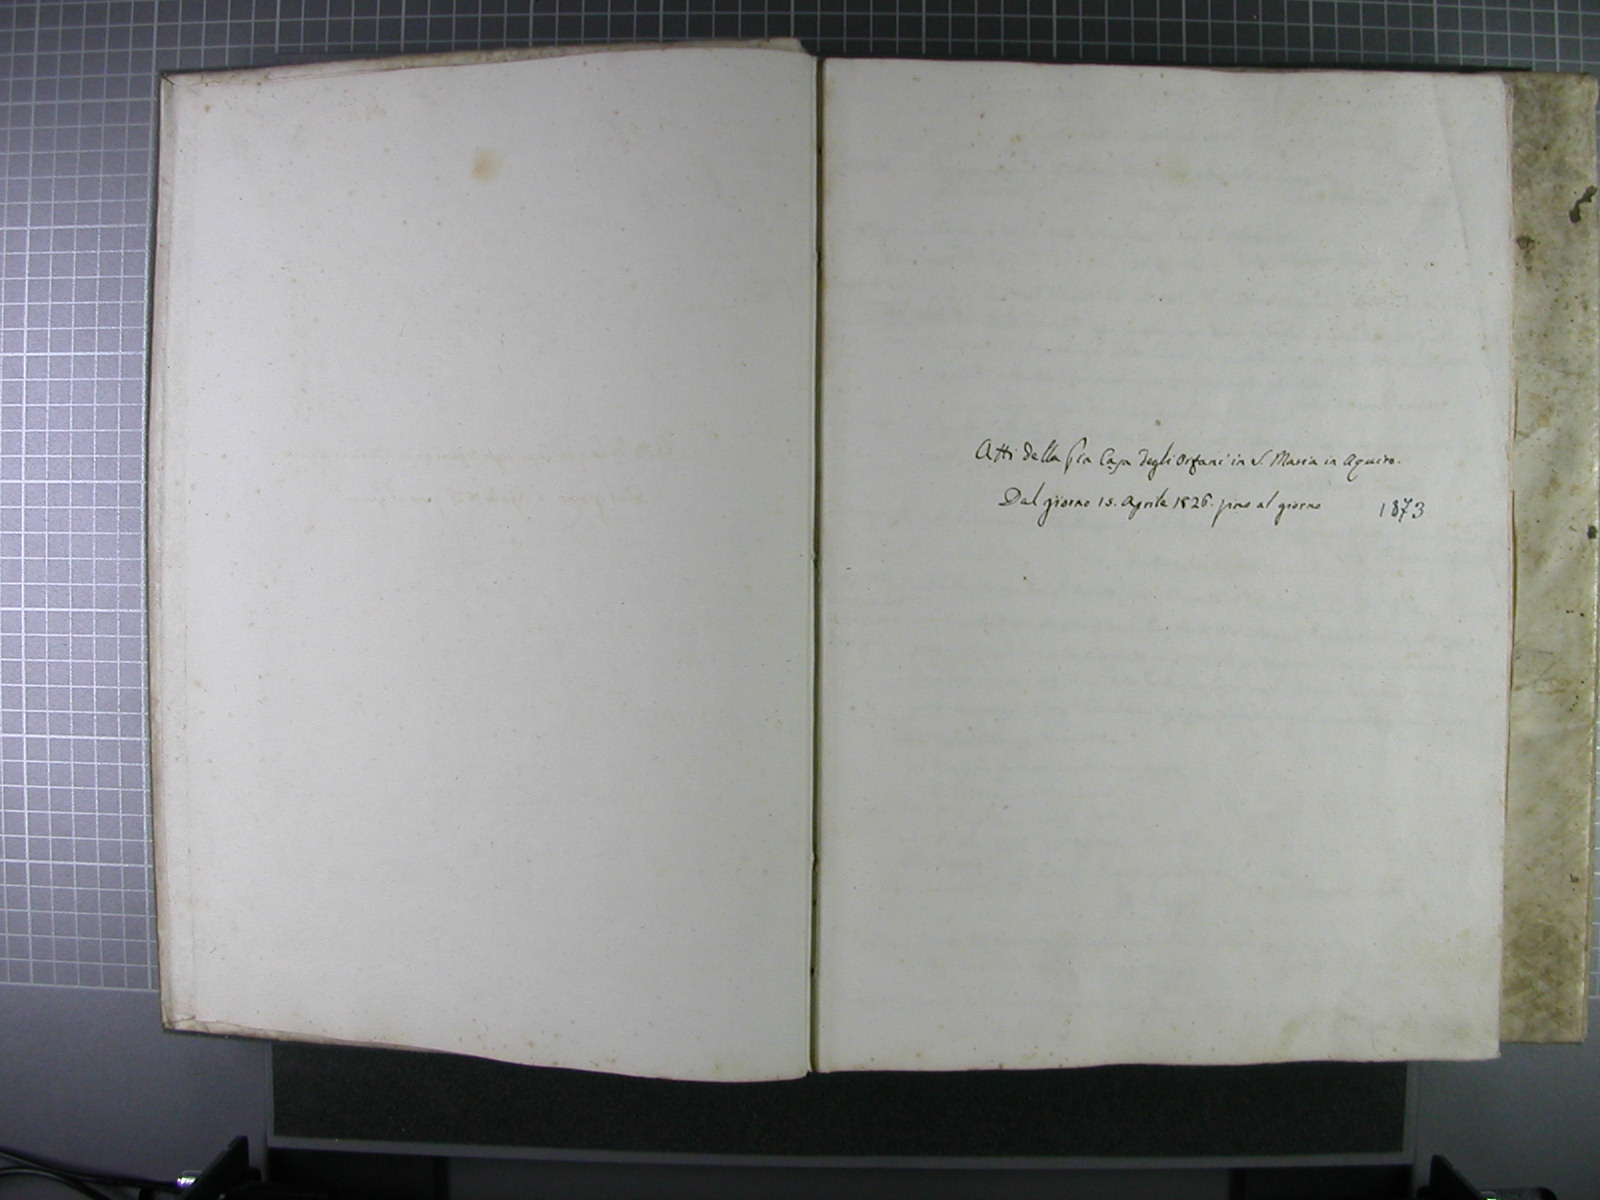 Atti della Pia Casa degli Orfani in S. Maria in Aquiro.
Dal giorno 15. Aprile 1826. fino al giorno 1873